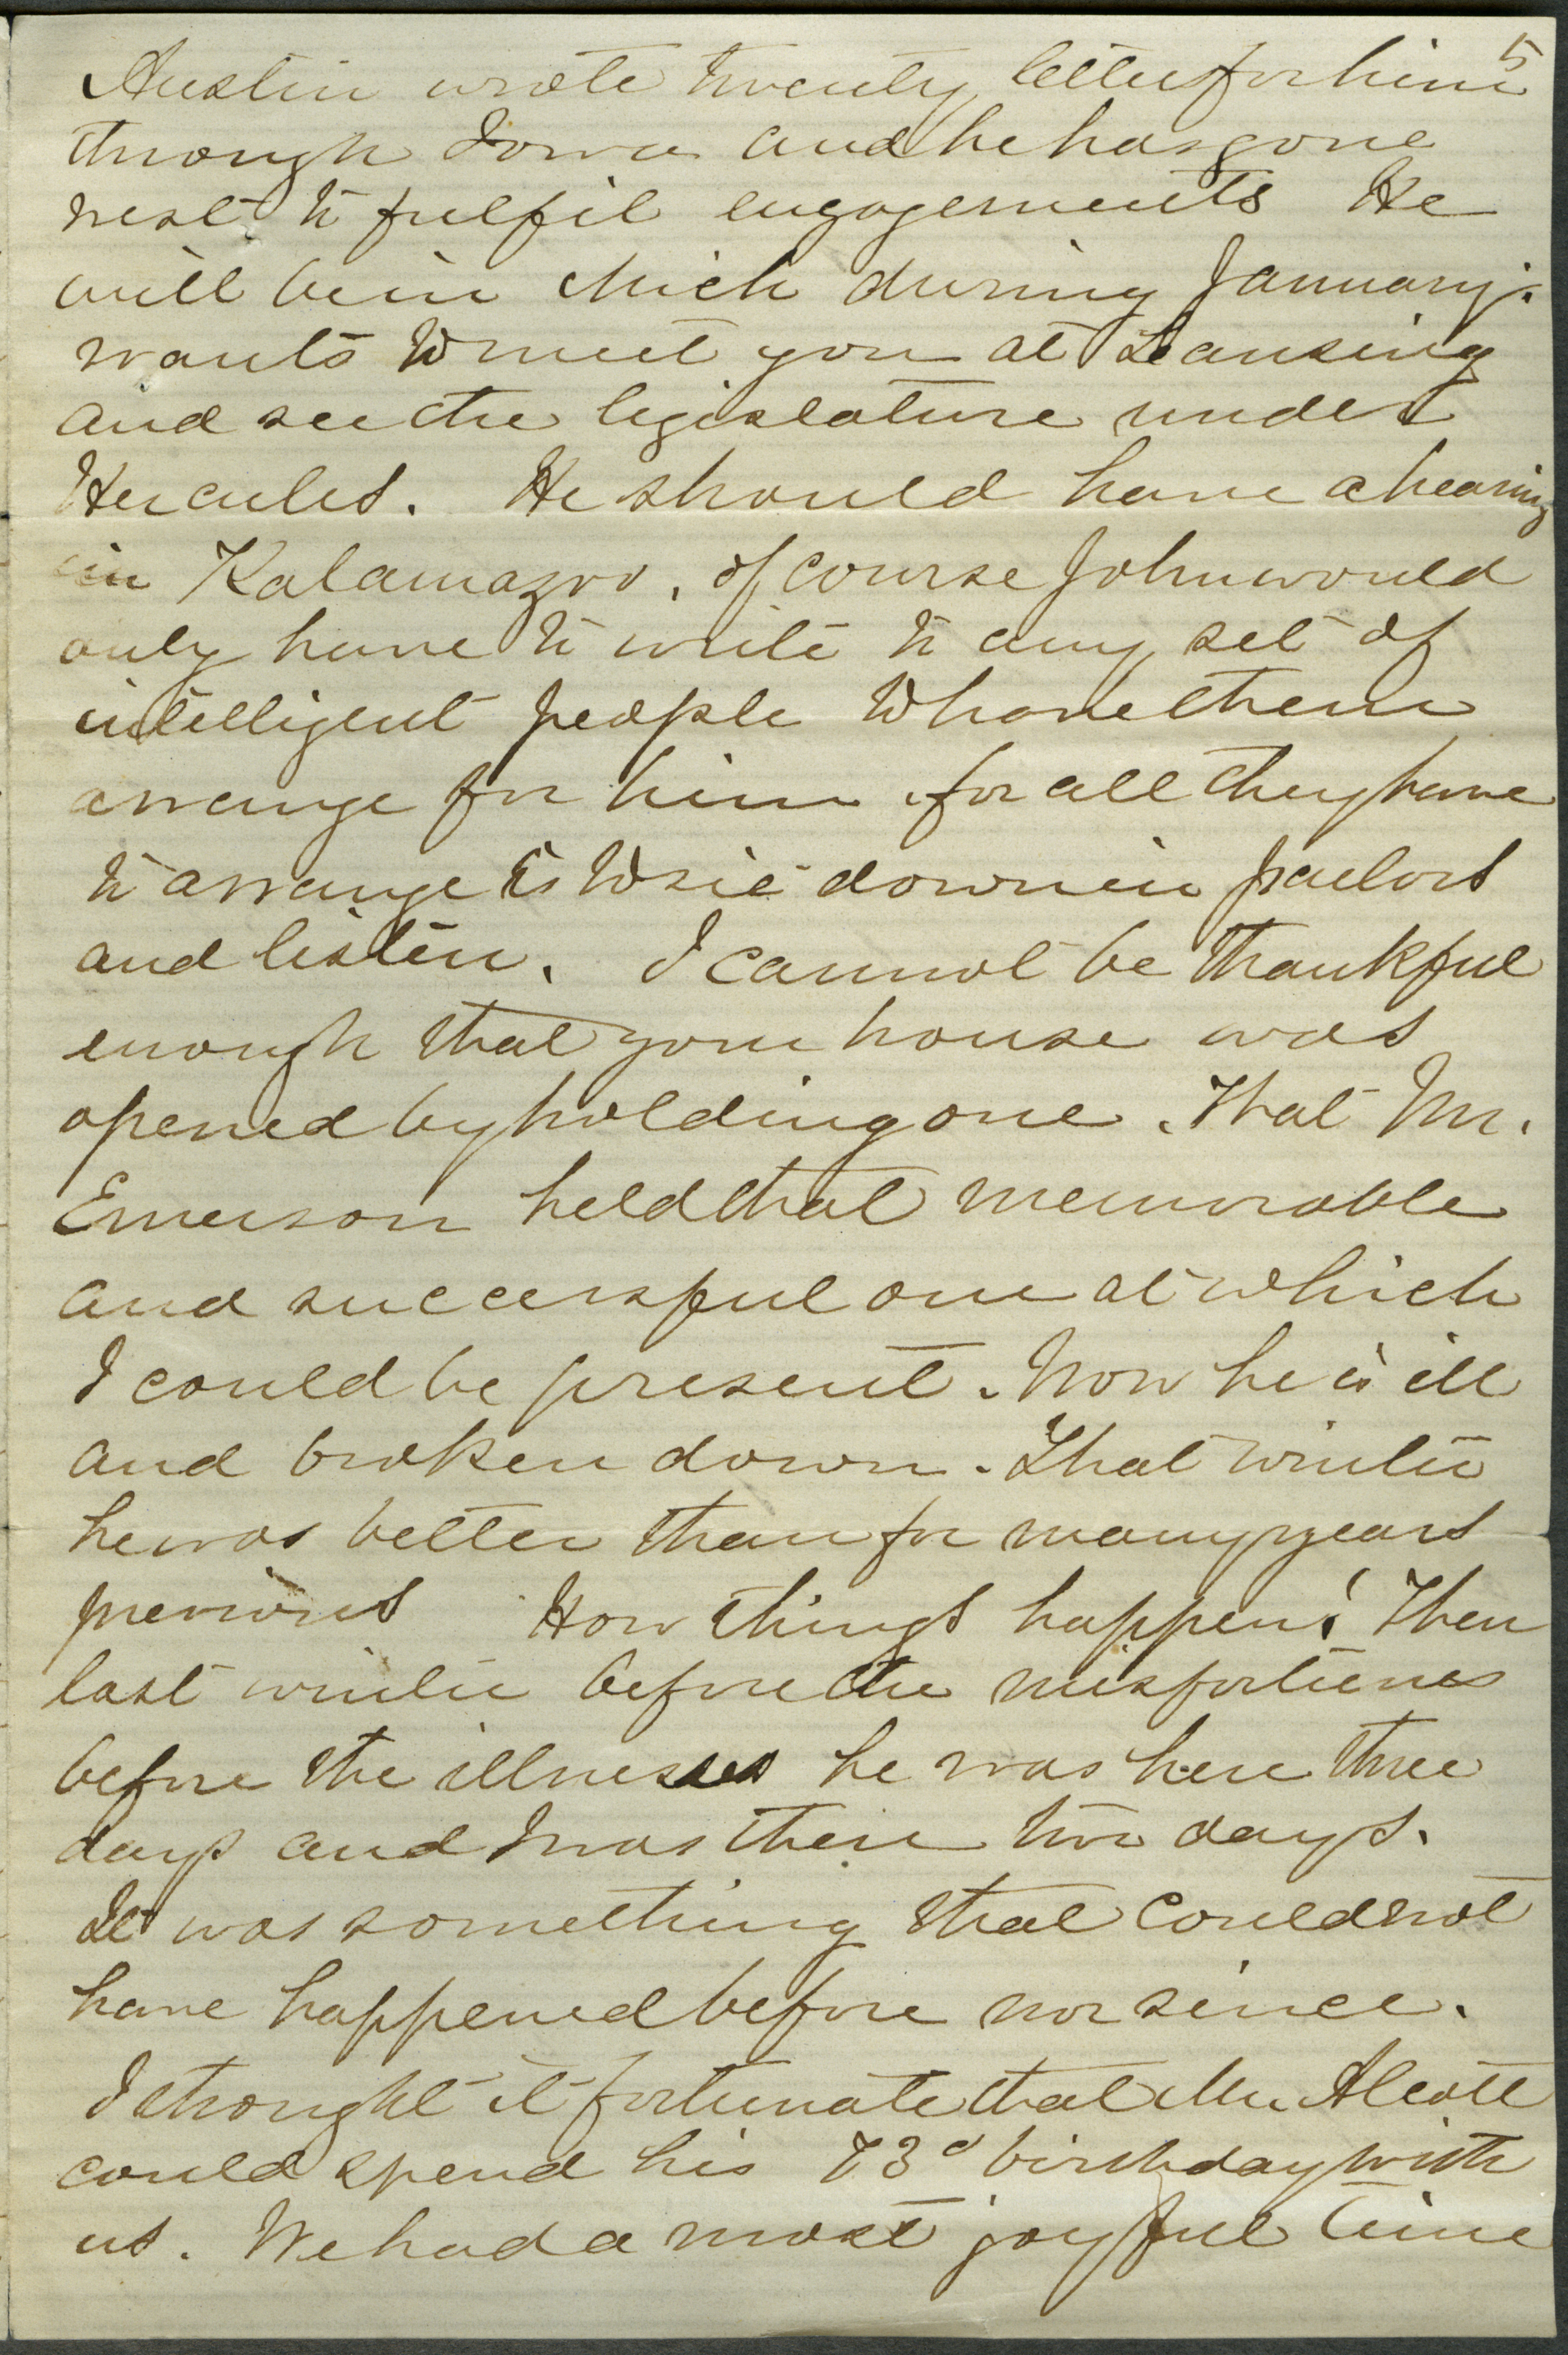 5
Austin wrote twenty letters for him
through Iowa and he has gone
west to fulfil engagements He
will be in Mich during January.
wants to meet you at Leansing
and see the legislature under
Hercules. He should have a hearing
in Kalamazoo. of course John would
only have to write to any set of
intelligent people to have them
arrange for him for all they have
to arrange is to sit down in parlors
and listen. I cannot be thankful
enough that your house was
opened by holding one. That Mr.
Emerson held that memorable
and successful one at which
I could be present. Now he is ill
and broken down. That winter
he was better than for many years
previous How things happen! Then
last winter before the misfortunes
before the illnesses he was here three
days and I was there two days.
It was something that could not
have happened before nor since.
I thought it fortunate that Mr. Alcott
could spend his 73d birthday with
us. We had a most joyful time